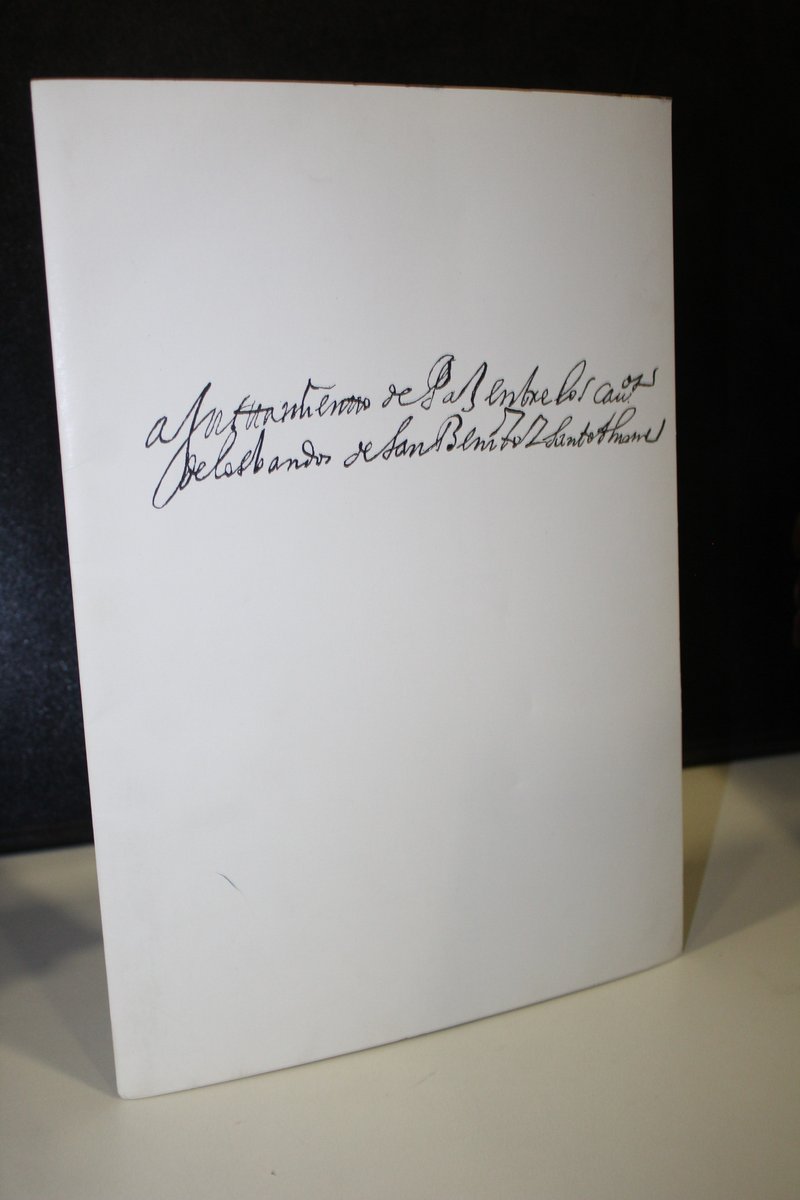 ajuntamiento de Paz entre los cauos
de los bandos de San Benito Z Santo thome